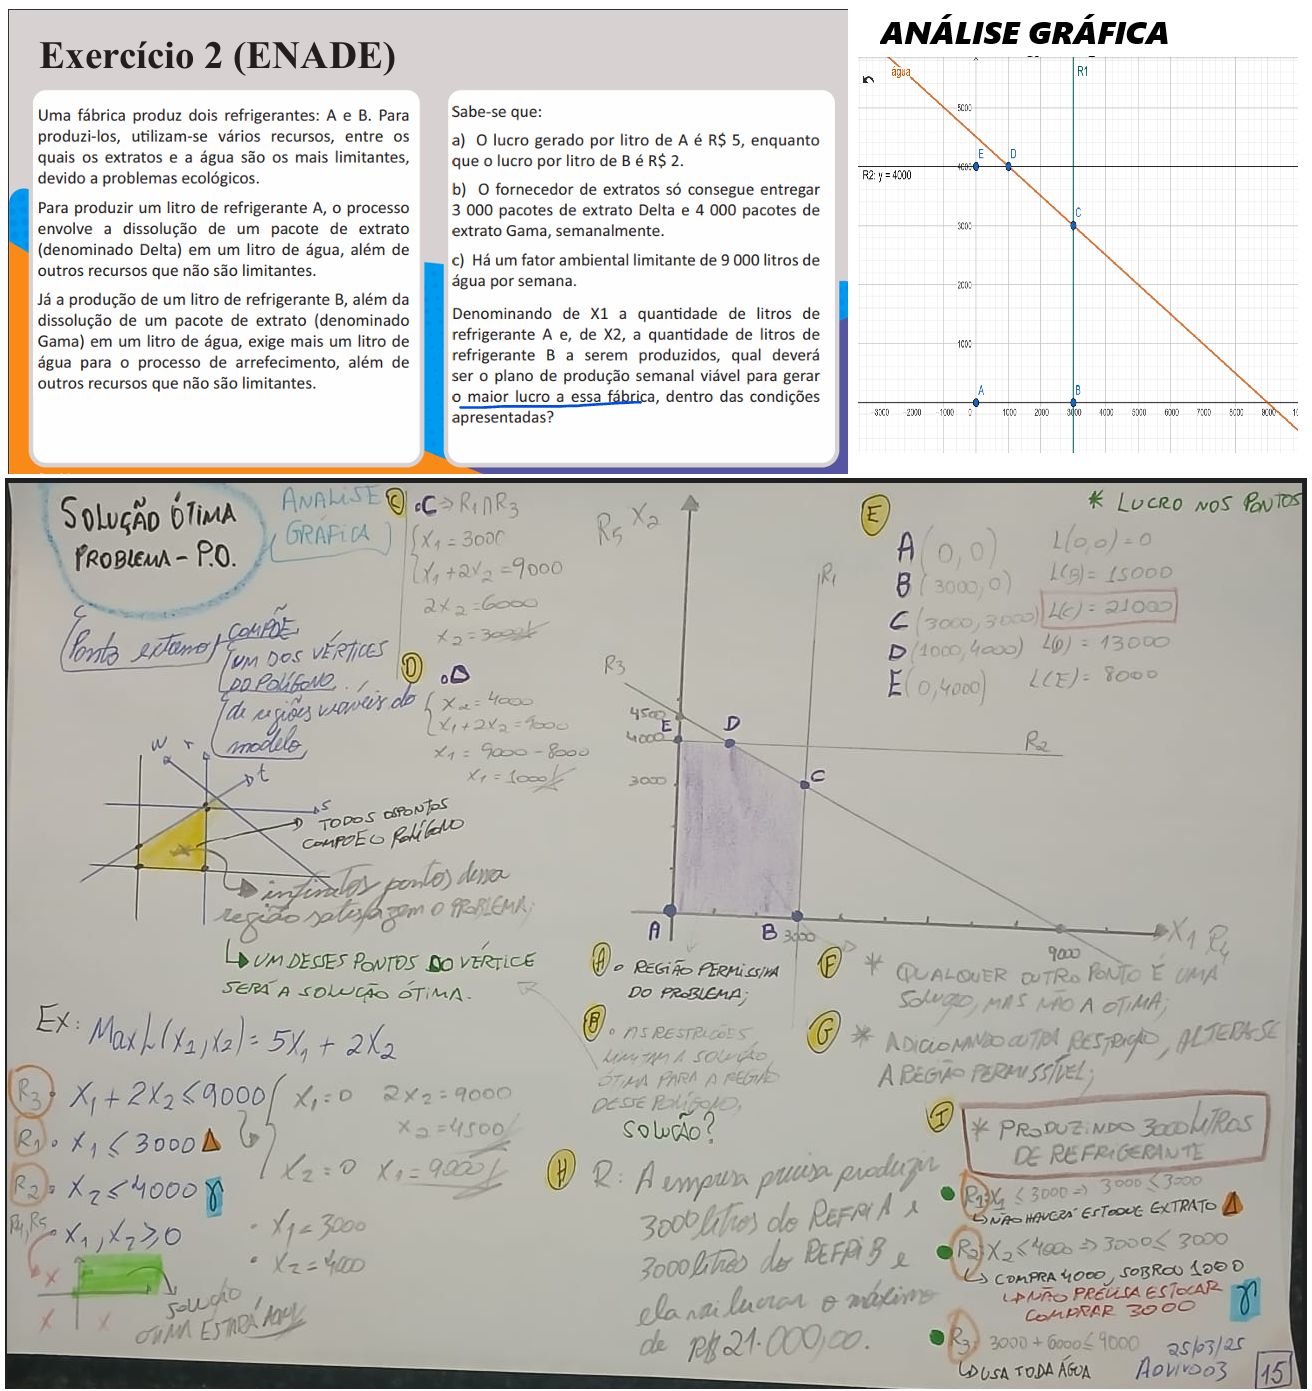 Exercício 2 (ENADE)
Uma fábrica produz dois refrigerantes: A e B. Para
produzi-los, utilizam-se vários recursos, entre os
quais os extratos e a água são os mais limitantes,
devido a problemas ecológicos.
Para produzir um litro de refrigerante A, o processo
envolve a dissolução de um pacote de extrato
(denominado Delta) em um litro de água, além de
outros recursos que não são limitantes.
Já a produção de um litro de refrigerante B, além da
dissolução de um pacote de extrato (denominado
Gama) em um litro de água, exige mais um litro de
água para o processo de arrefecimento, além de
outros recursos que não são limitantes.
Sabe-se que:
a) O lucro gerado por litro de A é R$ 5, enquanto
que o lucro por litro de B é R$ 2.
b) O fornecedor de extratos só consegue entregar
3 000 pacotes de extrato Delta e 4 000 pacotes de
extrato Gama, semanalmente.
c) Há um fator ambiental limitante de 9 000 litros de
água por semana.
Denominando de X1 a quantidade de litros de
refrigerante A e, de X2, a quantidade de litros de
refrigerante B a serem produzidos, qual deverá
ser o plano de produção semanal viável para gerar
o maior lucro a essa fábrica, dentro das condições
apresentadas?
ANÁLISE GRÁFICA
água
R1
5000
E
D
4000
R2: y = 4000
C
3000
2000
1000
A
B
-3000 -2000 -1000 0 1000 2000 3000 4000 5000 6000 7000 8000 9000 10
SOLUÇÃO ÓTIMA
PROBLEMA - P.O.
ANALISE
GRÁFICA
Ponto extremo
COMPÕE
UM DOS VÉRTICES
DO POLÍGONO
de regiões viáveis do
modelo
w
r
t
s
TODOS OS PONTOS
COMPÕE O POLÍGONO
infinitos pontos dessa
região satisfazem o PROBLEMA;
↳ UM DESSES PONTOS DO VÉRTICE
SERÁ A SOLUÇÃO ÓTIMA.
C
• C ⇒ R1 ∩ R3
X1 = 3000
X1 + 2X2 = 9000
2X2 = 6000
X2 = 3000
D
• D
X2 = 4000
X1 + 2X2 = 9000
X1 = 9000 - 8000
X1 = 1000
Ex: Max L(X1, X2) = 5X1 + 2X2
R3 • X1 + 2X2 ≤ 9000
R1 • X1 ≤ 3000
R2 • X2 ≤ 4000 γ
R4, R5 • X1, X2 ≥ 0
X1 = 0 2X2 = 9000
X2 = 4500
X2 = 0 X1 = 9000
• X1 = 3000
• X2 = 4000
X
X X
SOLUÇÃO
OTIMA ESTARÁ AQUI
R5 X2
R1
R3
4500
E
4000
D
R2
3000
C
A
B 3000
9000
X1 R4
E
* LUCRO NOS PONTOS
A (0, 0) L(0,0) = 0
B (3000, 0) L(B) = 15000
C (3000, 3000) L(C) = 21000
D (1000, 4000) L(D) = 13000
E (0, 4000) L(E) = 8000
A • REGIÃO PERMISSIVA
DO PROBLEMA;
B • AS RESTRIÇÕES
LIMITAM A SOLUÇÃO
ÓTIMA PARA A REGIÃO
DESSE POLÍGONO,
SOLUÇÃO?
F * QUALQUER OUTRO PONTO É UMA
SOLUÇÃO, MAS NÃO A OTIMA;
G * ADICIONANDO OUTRA RESTRIÇÃO, ALTERA-SE
A REGIÃO PERMISSÍVEL;
H R: A empresa precisa produzir
3000 litros do REFRI A e
3000 litros do REFRI B e
ela vai lucrar o máximo
de R$ 21.000,00.
I * PRODUZINDO 3000 LITROS
DE REFRIGERANTE
R1: X1 ≤ 3000 ⇒ 3000 ≤ 3000
↳ NÃO HAVERÁ ESTOQUE EXTRATO
R2: X2 ≤ 4000 ⇒ 3000 ≤ 3000
↳ COMPRA 4000, SOBROU 1000
↳ NÃO PRECISA ESTOCAR
COMPRAR 3000 γ
R3: 3000 + 6000 ≤ 9000
↳ USA TODA ÁGUA
25/03/25
AO VIVO 03
15